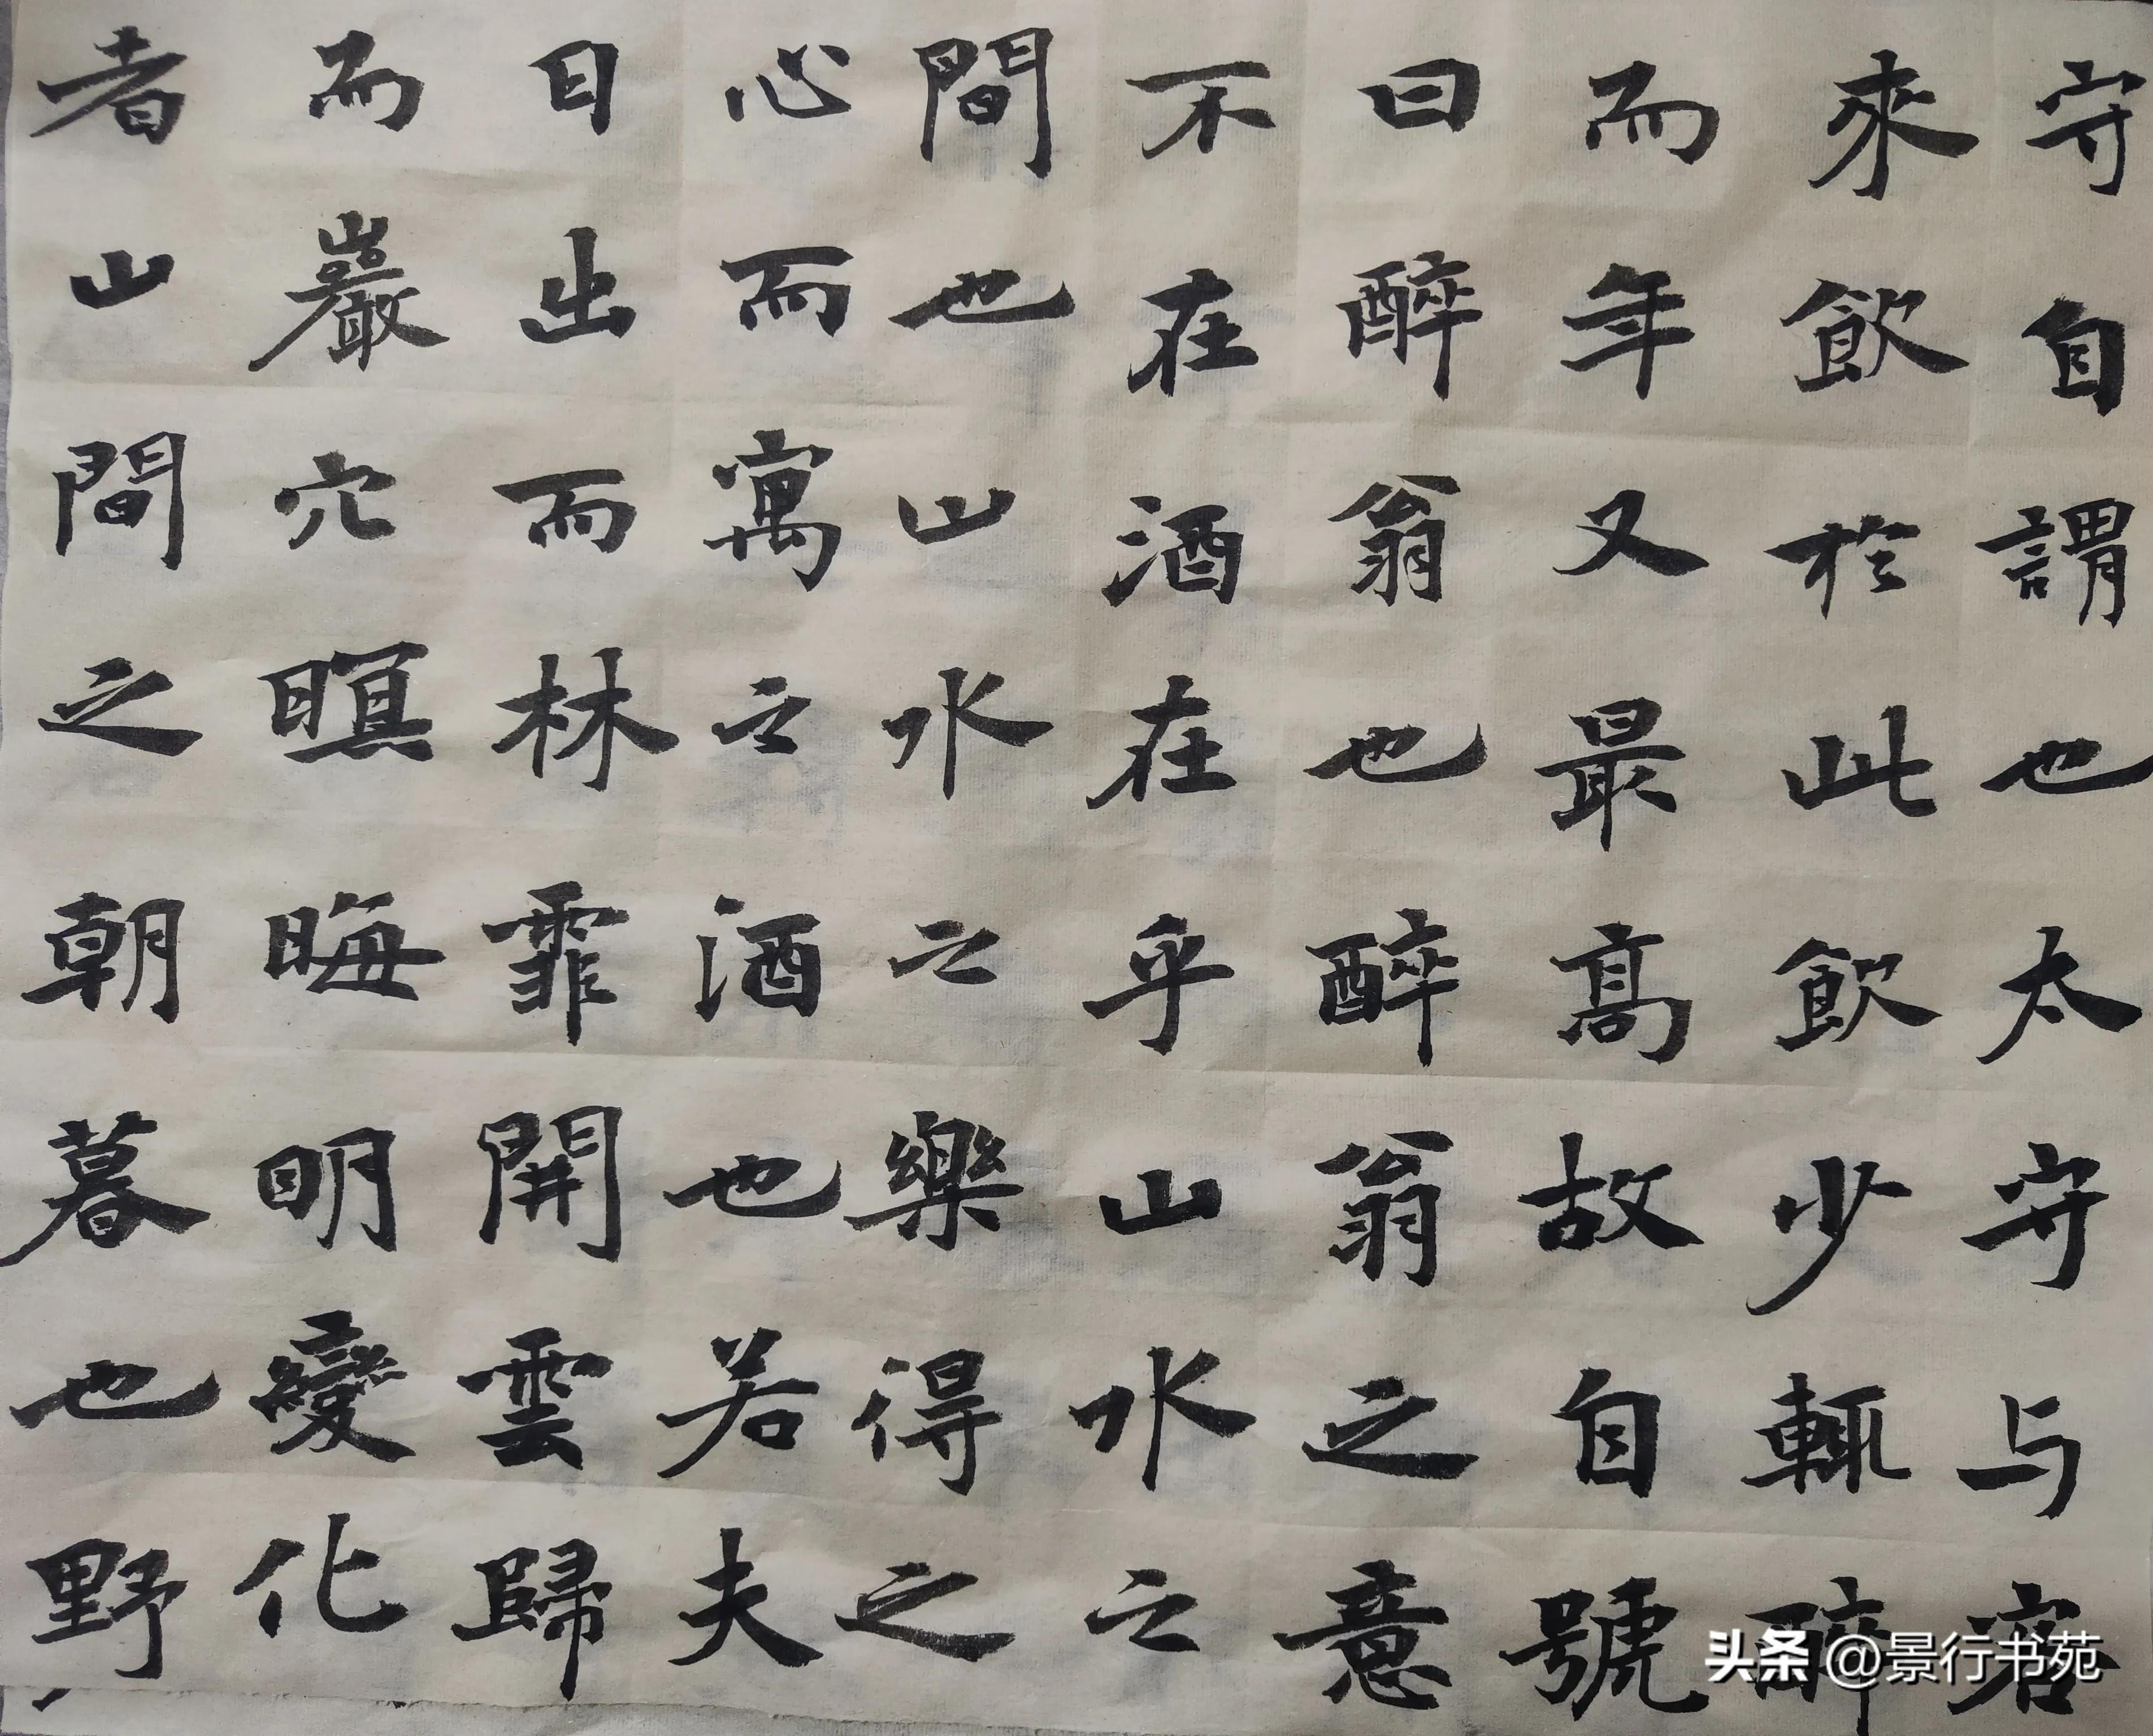 守自謂也太守与客
來飲於此飲少輒醉
而年又最高故自號
曰醉翁也醉翁之意
不在酒在乎山水之
間也山水之樂得之
心而寓之酒也若夫
日出而林霏開雲歸
而巖穴暝晦明變化
者山間之朝暮也野
头条@景行书苑